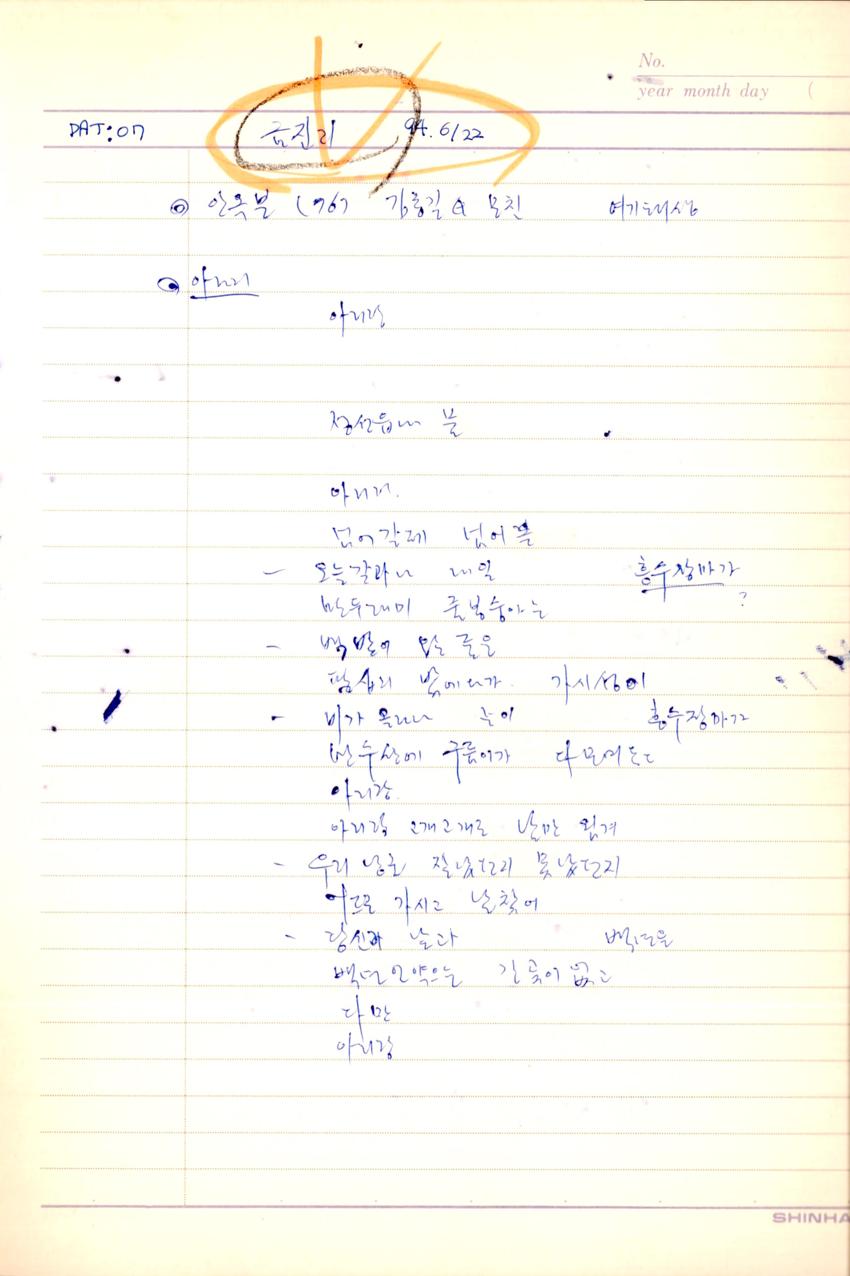 No.
year month day (
DAT:07 금진리 94. 6/22
안옥분 (76) 김흥길 모친 여기태생
아리리
아리랑
정선읍내 물
아리리.
넘어갈제 넘어
오늘갈과나 내일 홍수장마가
만두래미 줄봉숭아는 ?
백발이 줄은
팔십리 밖에다가. 가시성이
비가 올라나 눈이 홍수장마가
만수산에 구름이가 다 모여든다
아리랑.
아리랑 고개고개로 날만 넘겨
우리 낭군 잘났던지 못났던지
어드로 가시고 날찾어
당신과 날과 백년을
백년언약은 간곳이 없고
다만
아리랑
SHINHA